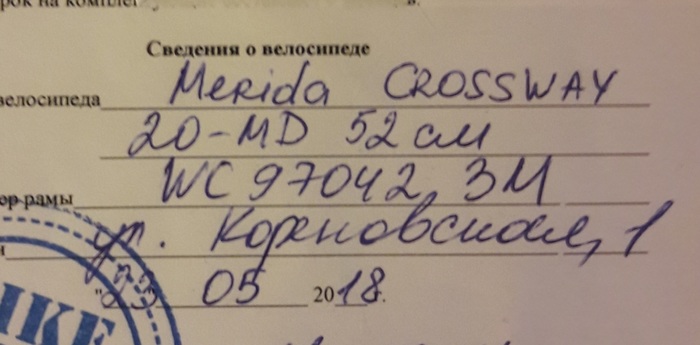 рок на комплек
Сведения о велосипеде
велосипеда Merida CROSSWAY
20-MD 52 см
ер-рамы WC97042 3M
ул. Кореновская, 1
"23" 05 2018.
IKE